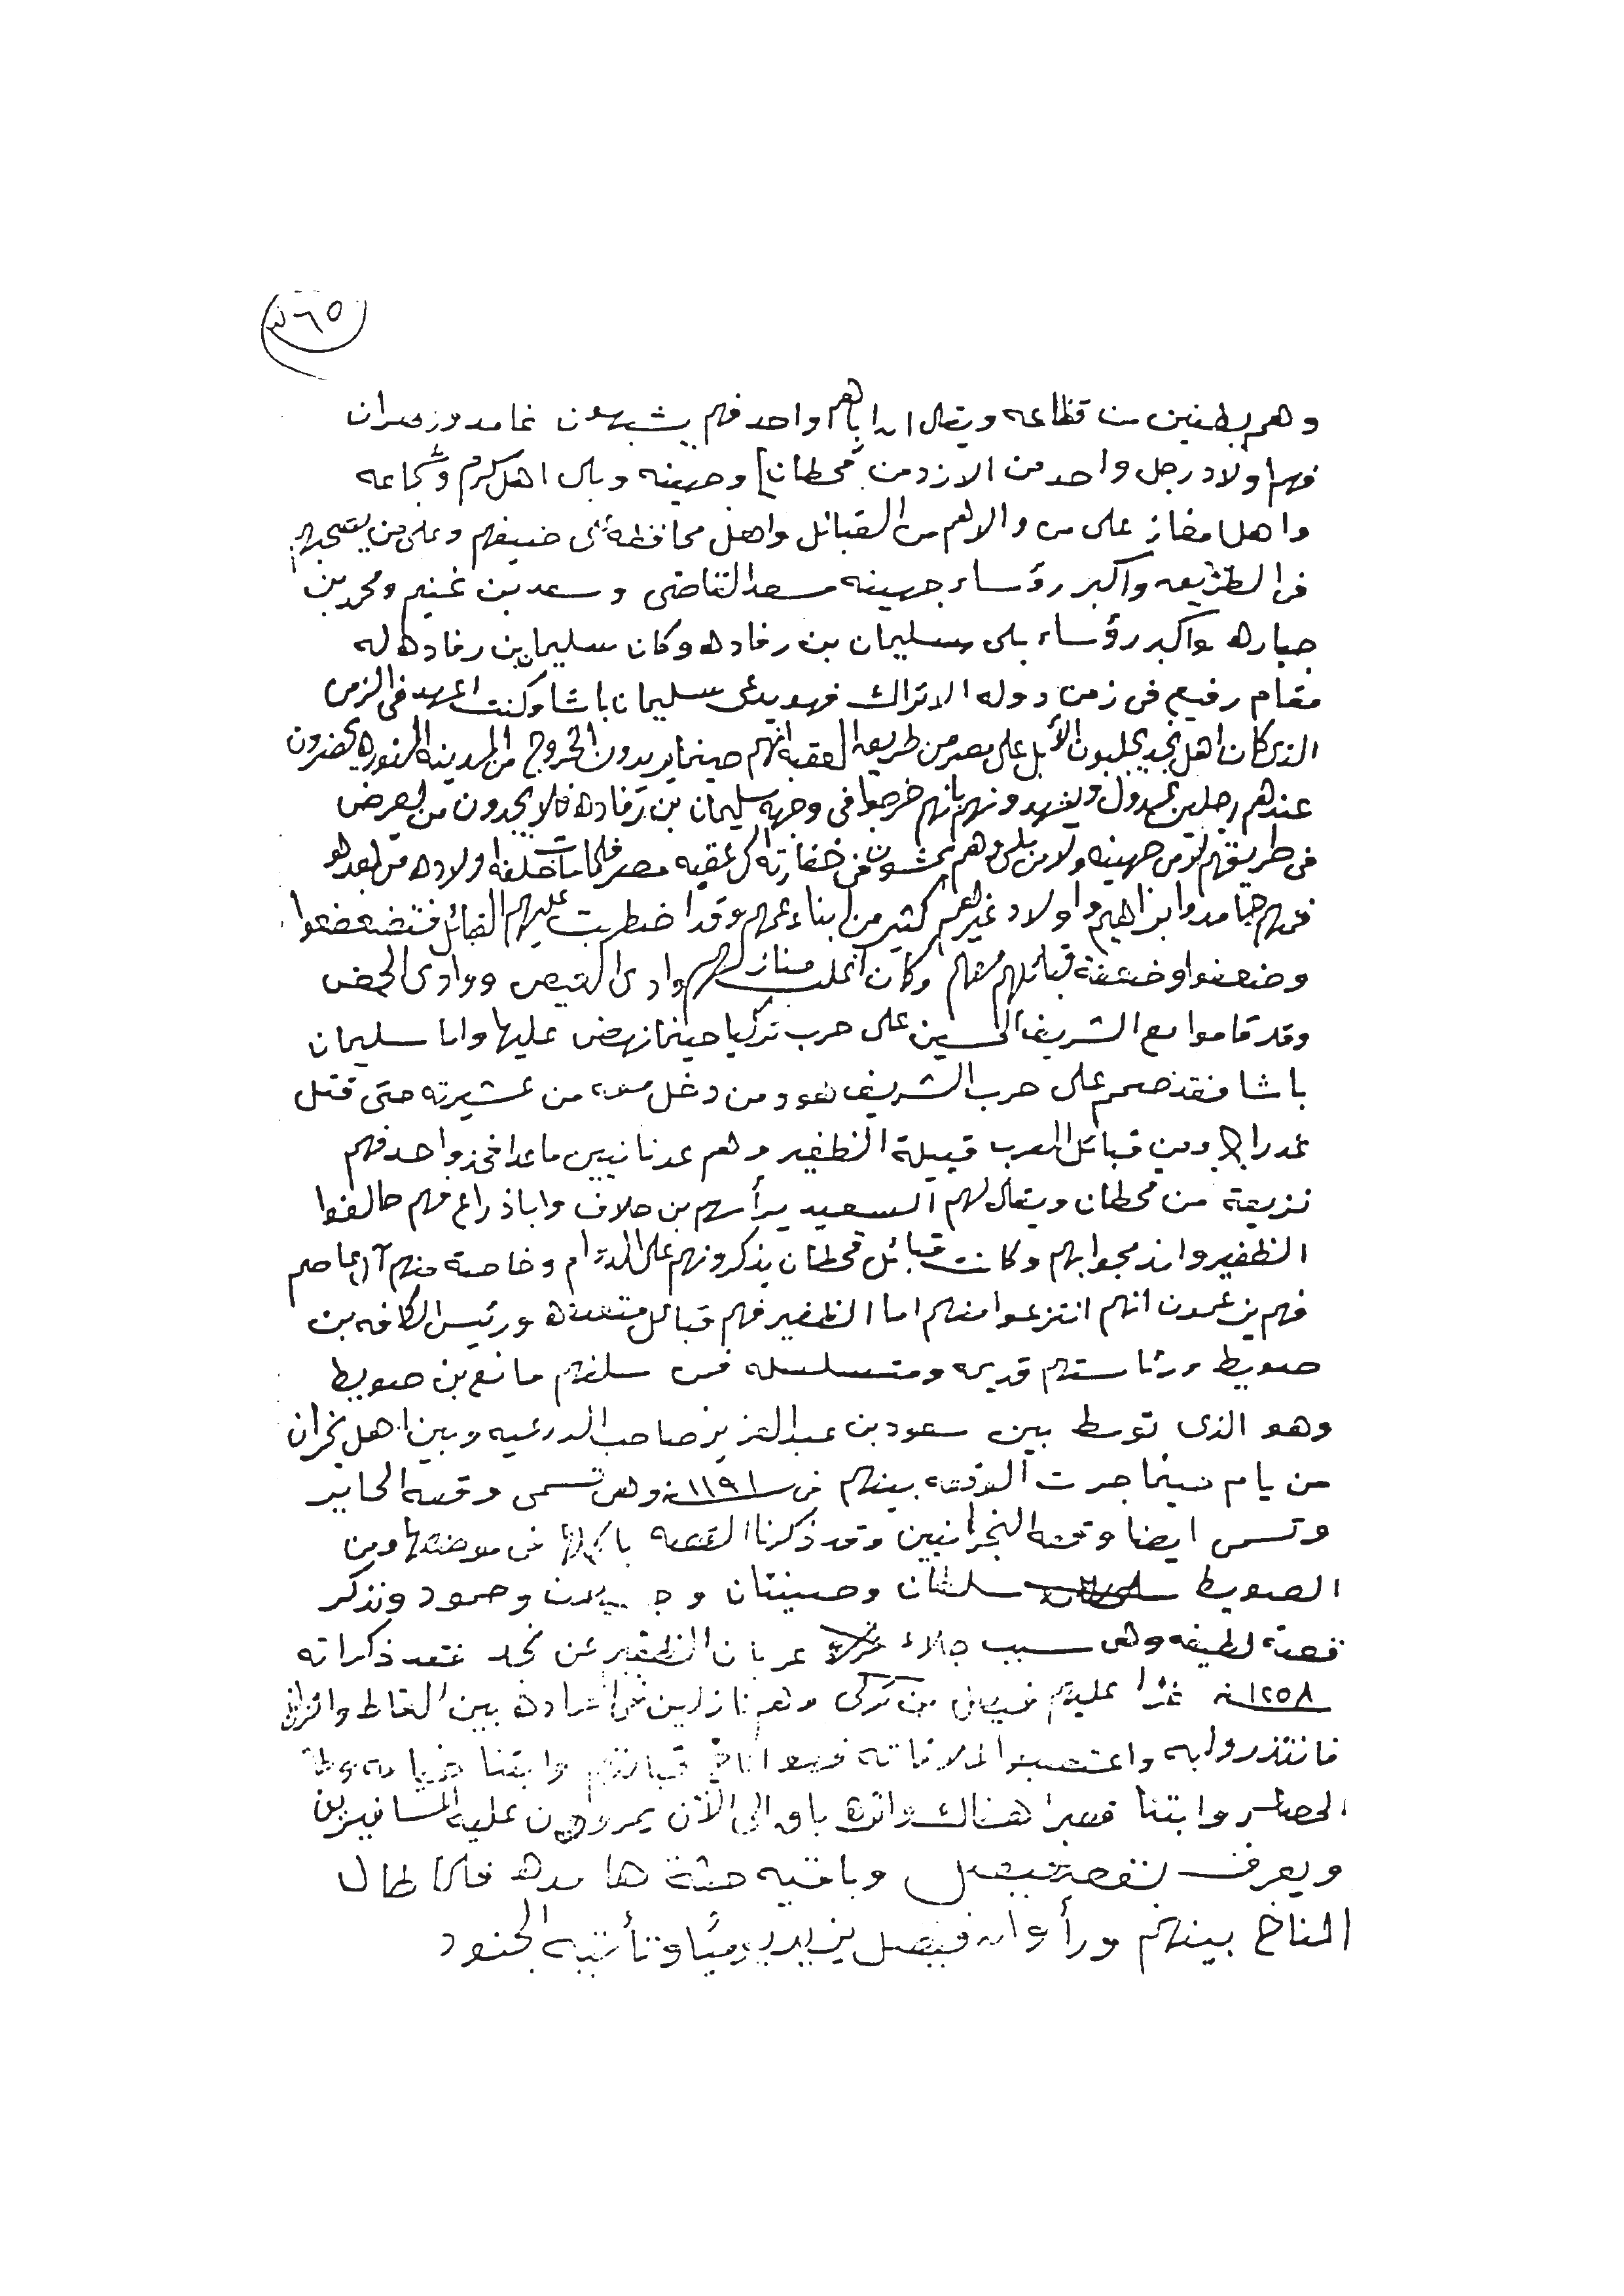 ٥٦٥
وهم بطنين من قظاعه ويقال ان اباهم واحد فهم يشبهون غامد وزهران
فهم اولاد رجل واحد من الازد من قحطان وجهينه وبلى اهل كرم وشجاعه
واهل مغاز على من والاهم من القبائل واهل محافظه على ضيفهم وعلى من يصحبهم
فى الطريق واكبر رؤساء جهينه سعد القاضى وسعد بن غنيم ومحمد بن
جباره واكبر رؤساء بلى سليمان بن رفاده وكان سليمان بن رفاده له
مقام رفيع فى زمن دوله الاتراك فهو يدعى سليمان باشا وكنت اعهد فى الزمن
الذى كان اهل نجد يجلبون الأبل على مصر من طريق العقبه انهم حينما يريدون الخروج من المدينه المنوره يحضرون
عندهم رجلين عدول ويشهدونهم بانهم خرجوا فى وجه سليمان بن رفاده فلا يجدون من يعرض
فى طريقهم لا من جهينه ولا من بلى وهم يمشون فى خفارته الى عقبه مصر فلما مات خلفه اولاده من بعده
فمنهم حامد وابراهيم واولاد غيرهم كثير من ابناء عمهم وقد اضطربت عليهم القبائل فتضعضعوا
وضعفوا وضعفة قبائلهم معهم وكان اغلب منازلهم وادى العيص ووادى الحمض
وقد قاموا مع الشريف الحسين على حرب تركيا حينما نهض عليها واما سليمان
باشا فقد صمم على حرب الشريف هو ومن دخل معه من عشيرته حتى قتل
غدرا ومن قبائل العرب قبيلة الظفير وهم عدنانيين ماعدا فخذ واحد فهم
نزيعة من قحطان ويقال لهم السعيد يرأسهم بن حلاف واباذراع فهم حالفوا
الظفير واندمجوا بهم وكانت قبائل قحطان يذكرونهم على الدوام وخاصة منهم آل عاصم
فهم يزعمون انهم انتزعوا منهم اما الظفير فهم قبائل متعدده ورئيس الكافه بن
صويط ورئاستهم قديمه ومتسلسله فمن سلفهم مانع بن صويط
وهو الذى توسط بين سعود بن عبدالعزيز صاحب الدرعيه وبين اهل نجران
من يام حينما جرت الوقعه بينهم فى ١١٩١سنه وهى تسمى وقعه الحاير
وتسمى ايضا وقعه النجرانيين وقد ذكرنا القصه باكملها فى موضعها ومن
الصويط سلطان وحنيتان وجـ وحمود ونذكر
قصة لطيفه وهى سبب جلاء عربان الظفير عن نجد فقد ذكر انه
١٢٥٨سنه غزا عليهم فيصل بن تركى وهم نازلين على جراده بين الغاط والزلفى
فانتذروا به واعتصبوا لملاقاته فهو اناخ قبالتهم وابتنا خيامه
الحصار وابتنا قصرا هناك واثره باق الى الآن يمرون عليه المسافرين
ويعرف بقصر فيصل وباقيه جثة هامده فلما طال
المناخ بينهم ورأوا ان فيصل يزيد يوميًا وتأتيه الجنود